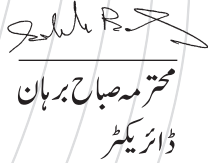 محترمہ صباح برہان
ڈائریکٹر